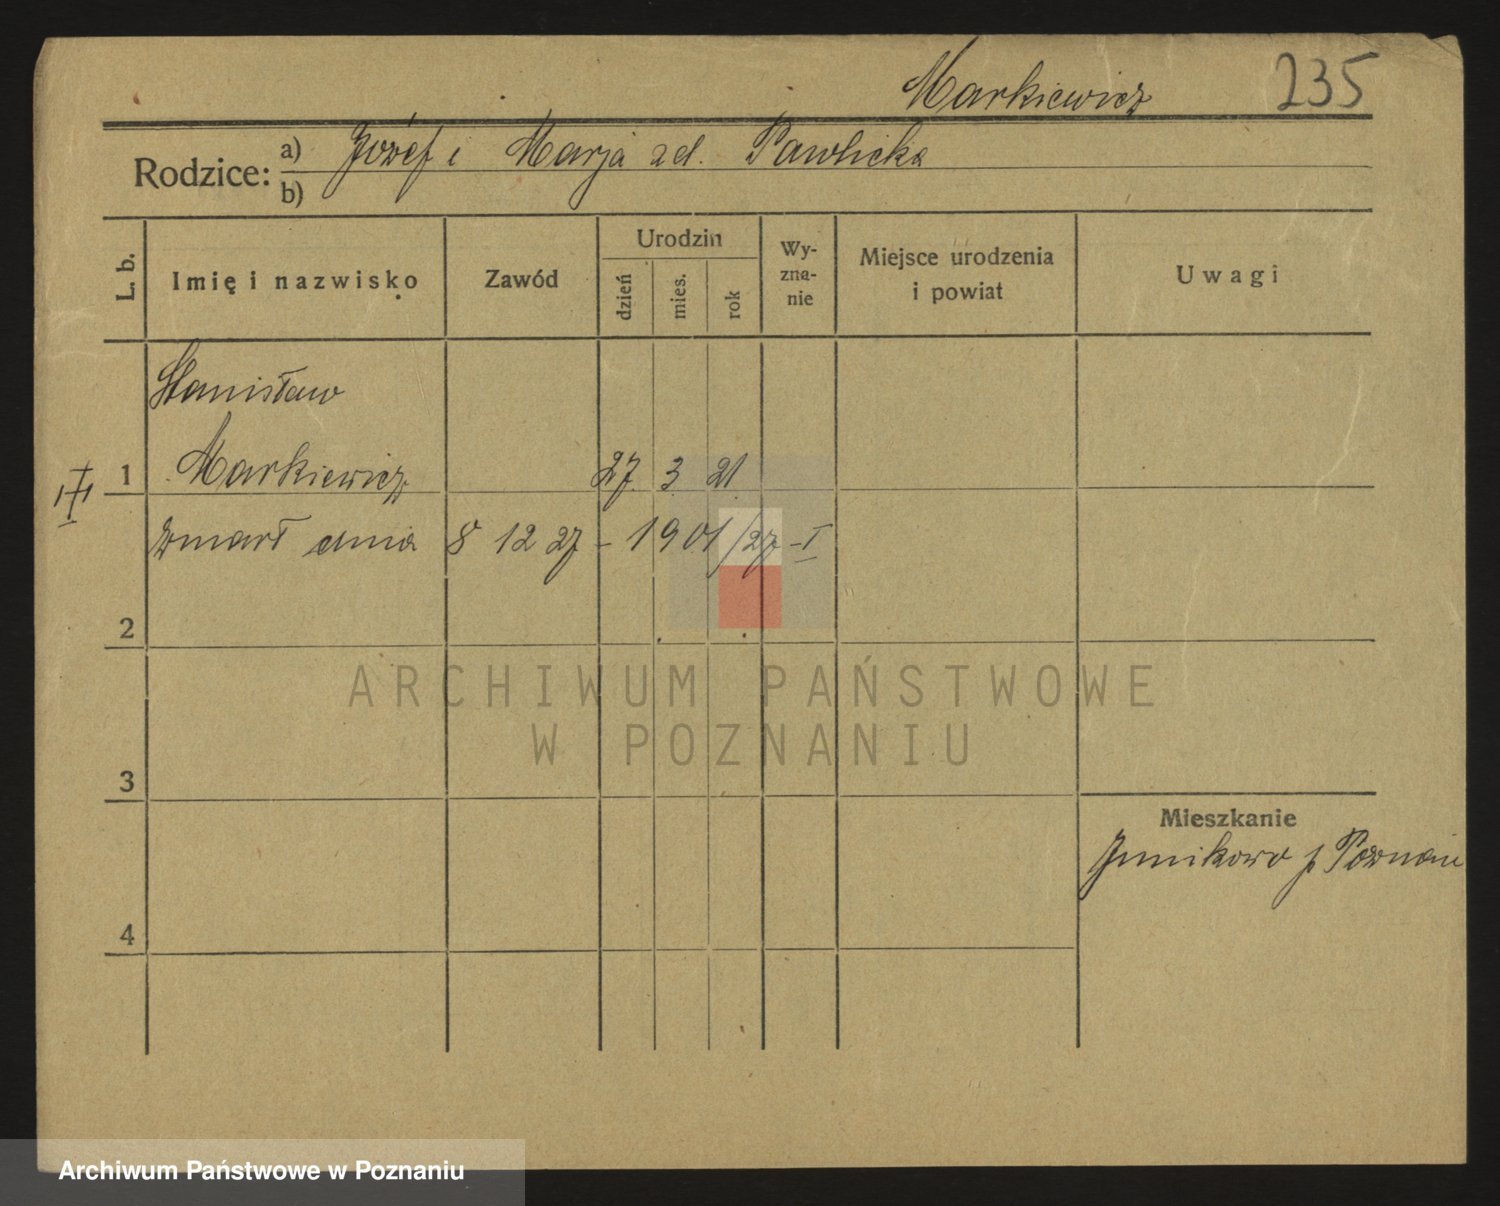 Markiewicz 235
Rodzice: a) Józef i Marja zd. Pawlicka
b)
L. b. Imię i nazwisko Zawód Urodzin dzień mies. rok Wyznanie Miejsce urodzenia i powiat Uwagi
Stanisław
III 1 Markiewicz 27. 3. 21
zmarł dnia 8 12 27 - 1901/27 - I
2
ARCHIWUM PAŃSTWOWE
W POZNANIU
3
Mieszkanie
Junikowo p Poznań
4
Archiwum Państwowe w Poznaniu